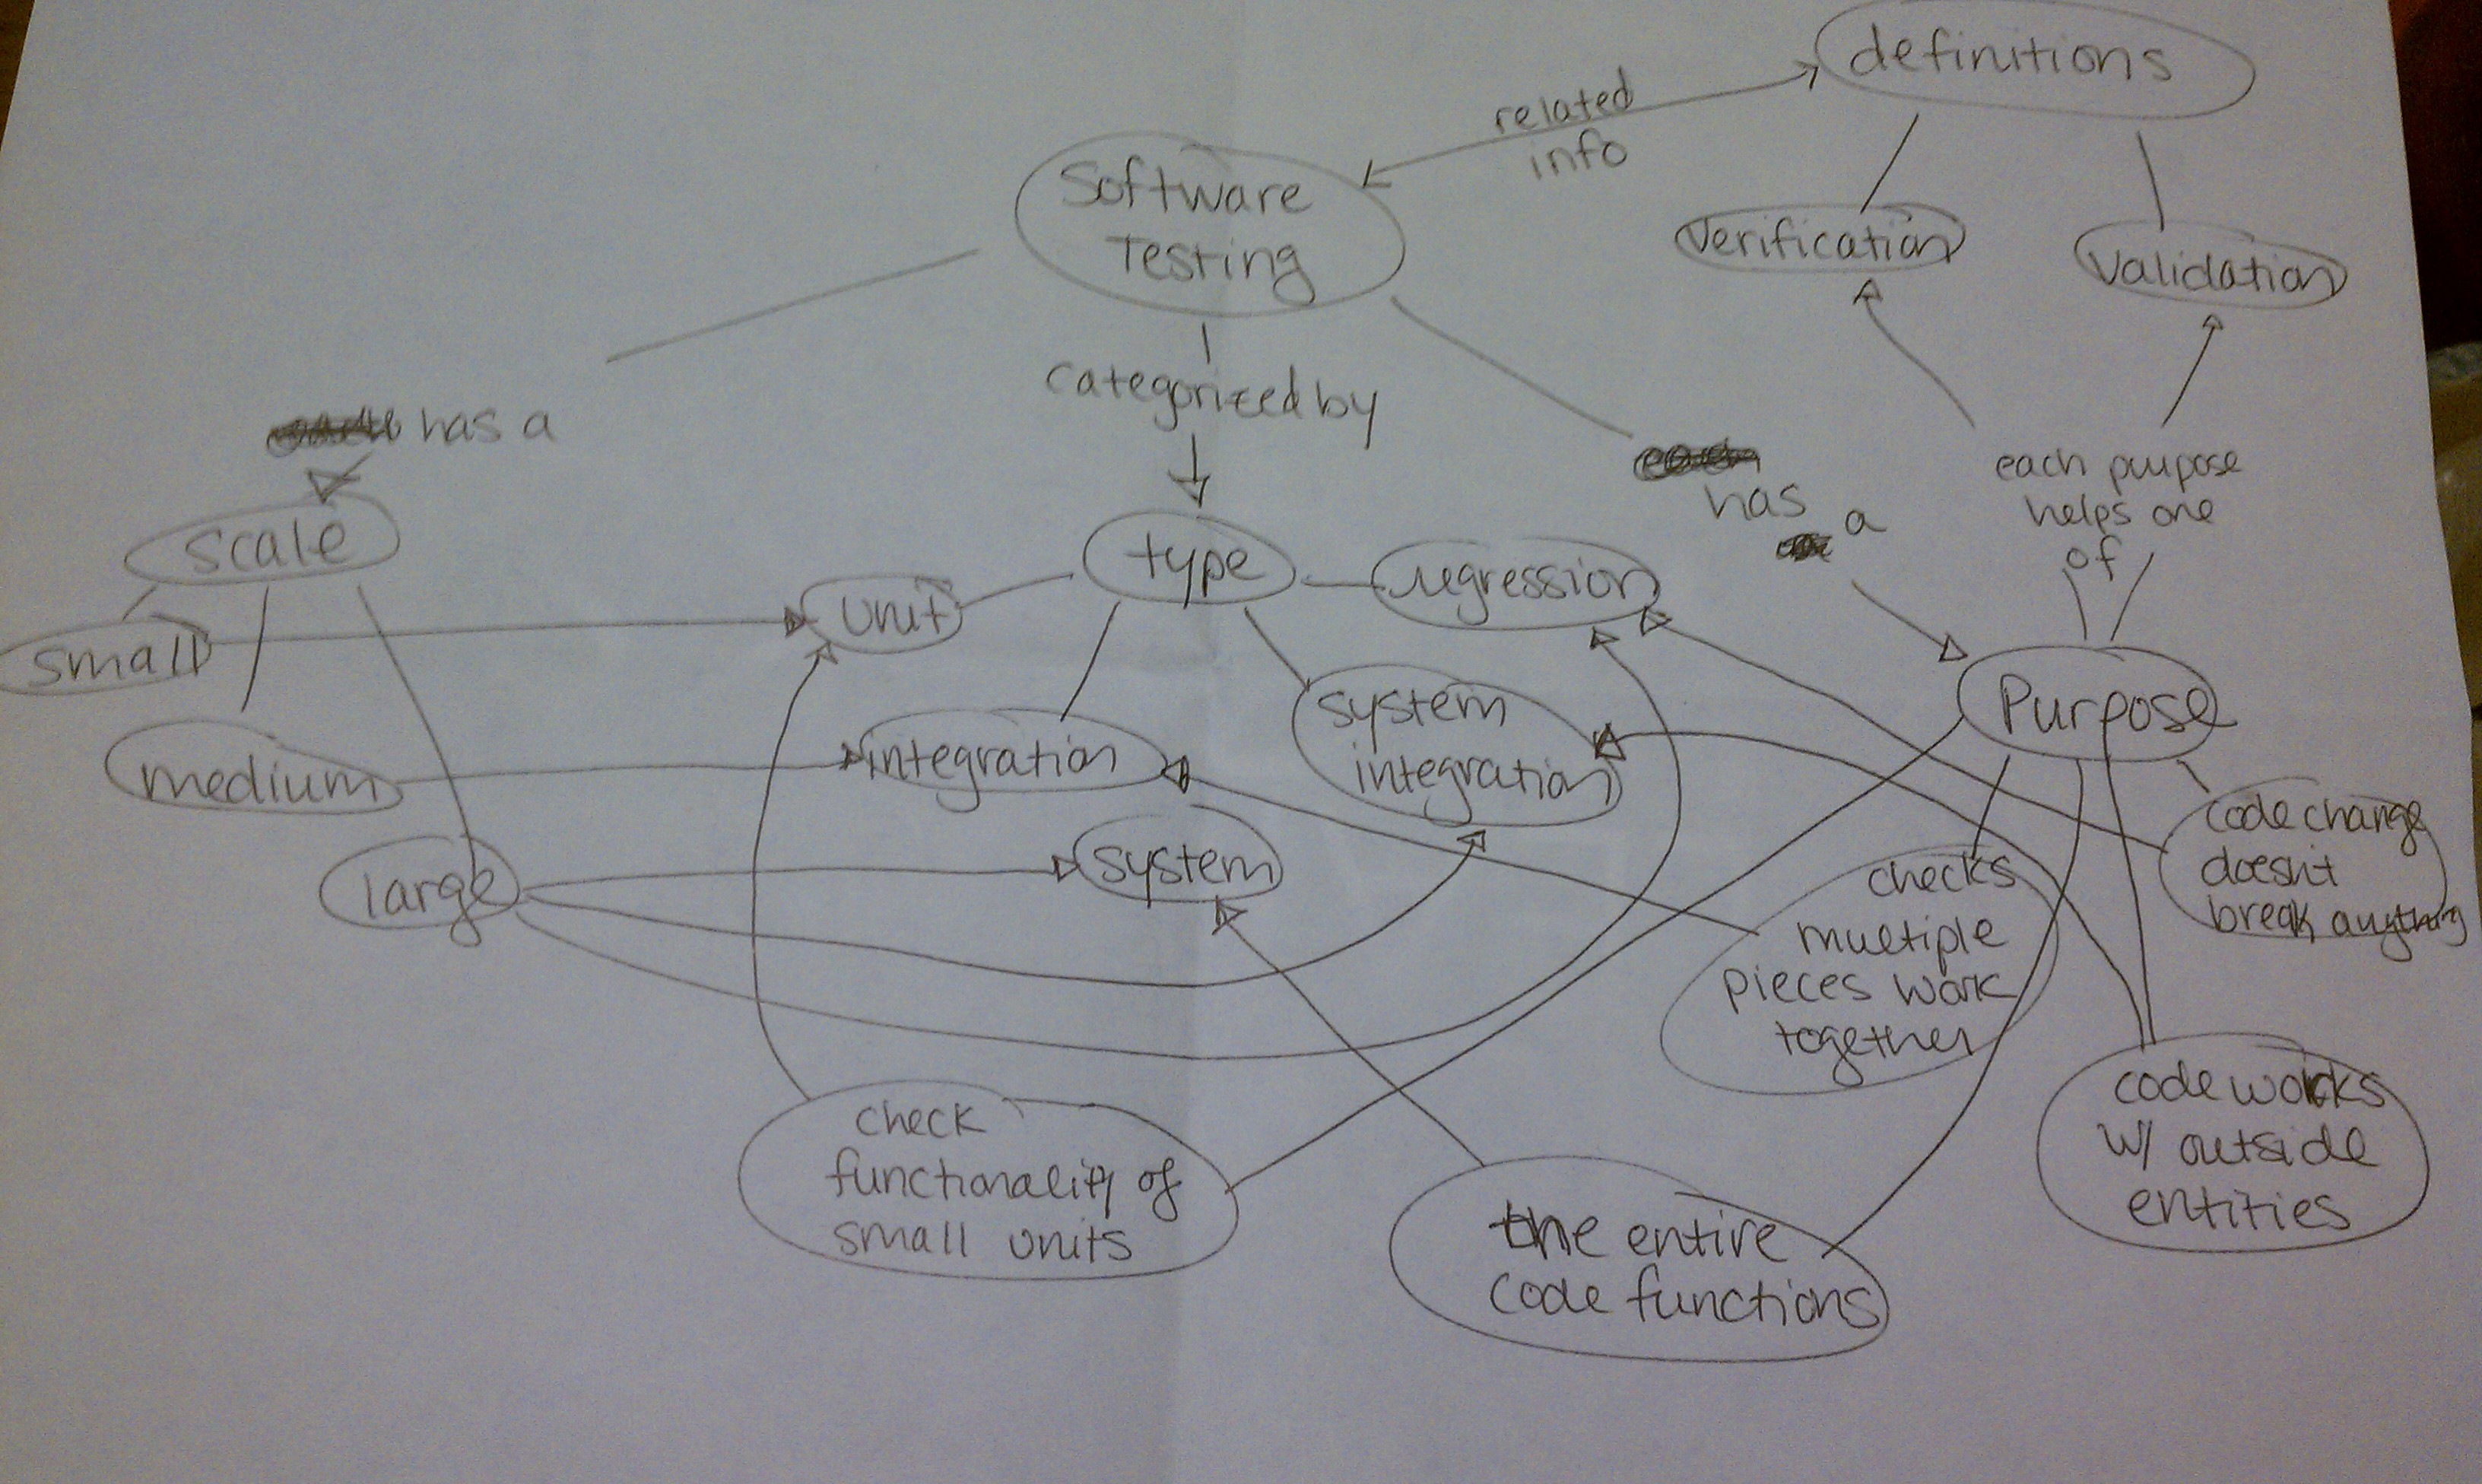 definitions
related
info
Software
Testing
Verification
Validation
categorized by
has a
has
a
each purpose
helps one
of
scale
type
unit
regression
small
system
integration
Purpose
medium
integration
large
system
code change
doesn't
break anything
checks
multiple
pieces work
together
code works
w/ outside
entities
check
functionality of
small units
the entire
code functions